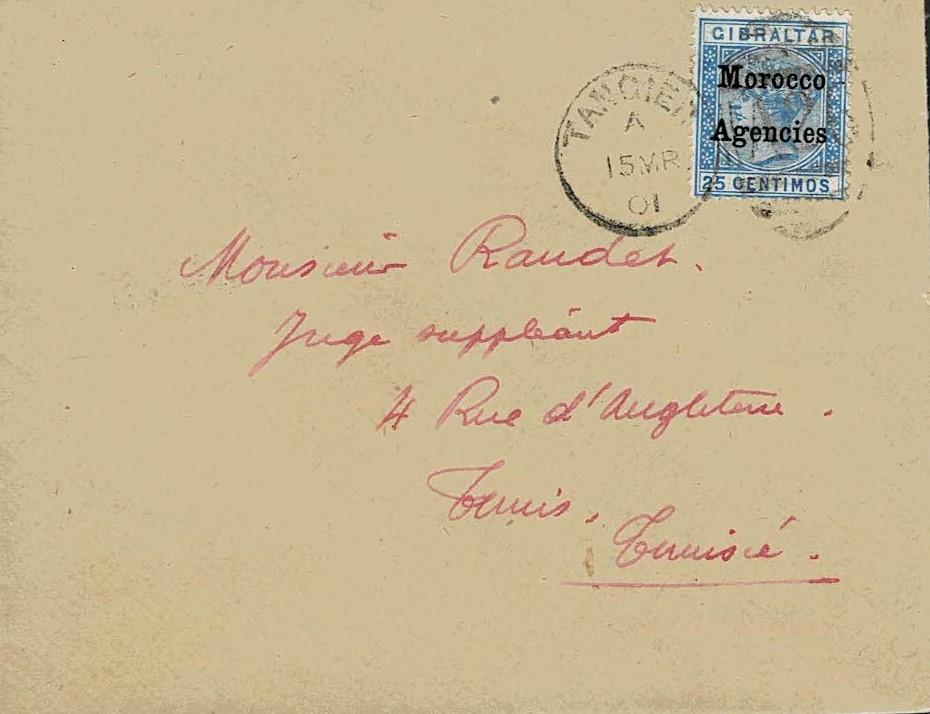 GIBRALTAR
Morocco
Agencies
25 CENTIMOS
TANGIER
A
15 MR
01
Monsieur Raudet.
Juge suppléant
4 Rue d'Angleterre.
Tunis.
Tunisie.